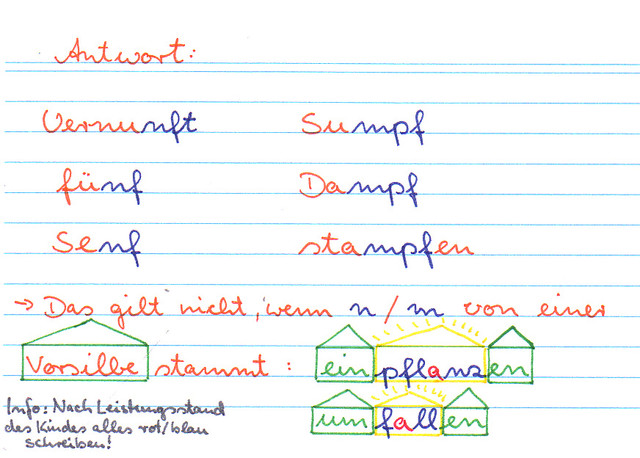 Antwort:
Vernunft Sumpf
fünf Dampf
Senf stampfen
→ Das gilt nicht, wenn n / m von einer
Vorsilbe stammt: einpflanzen
umfallen
Info: Nach Leistungsstand
des Kindes alles rot/blau
schreiben!